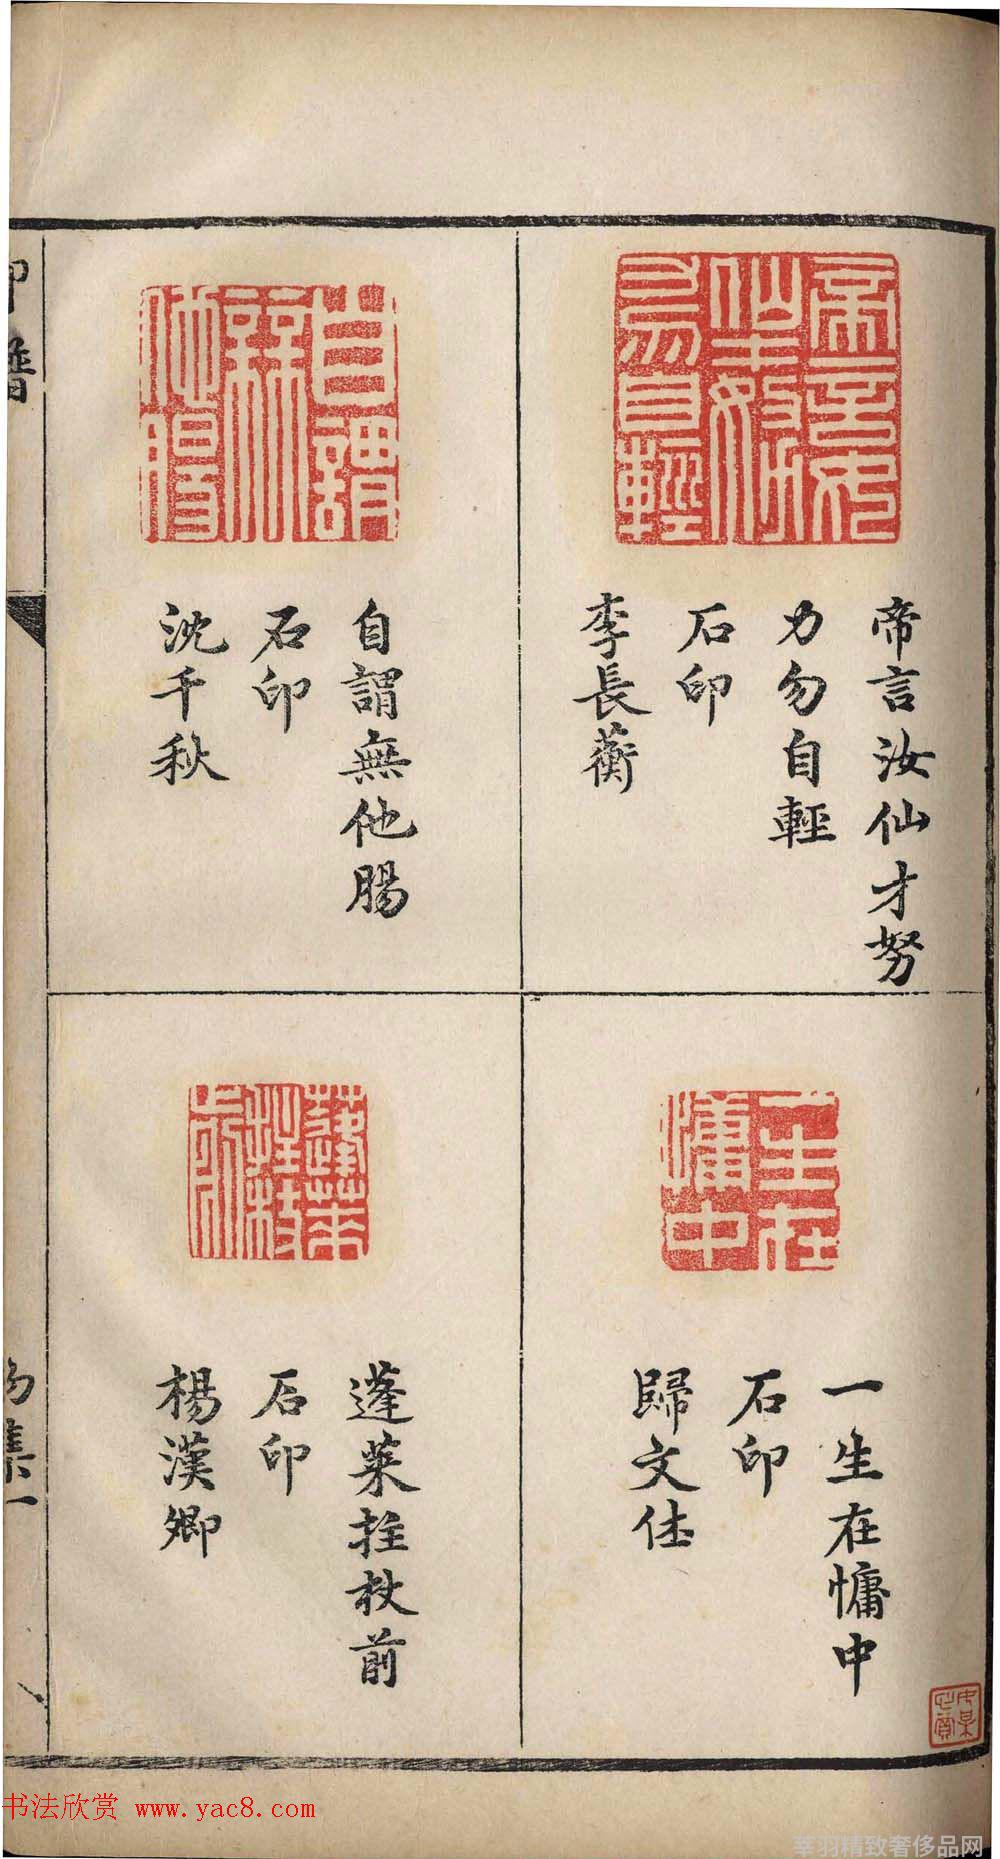 帝言汝仙才努
力勿自輕
石印
李長蘅
自謂無他腸
石印
沈千秋
一生在慵中
石印
歸文休
蓬萊拄杖前
石印
楊漢卿
印譜
書法欣赏 www.yac8.com
莘羽精致奢侈品网